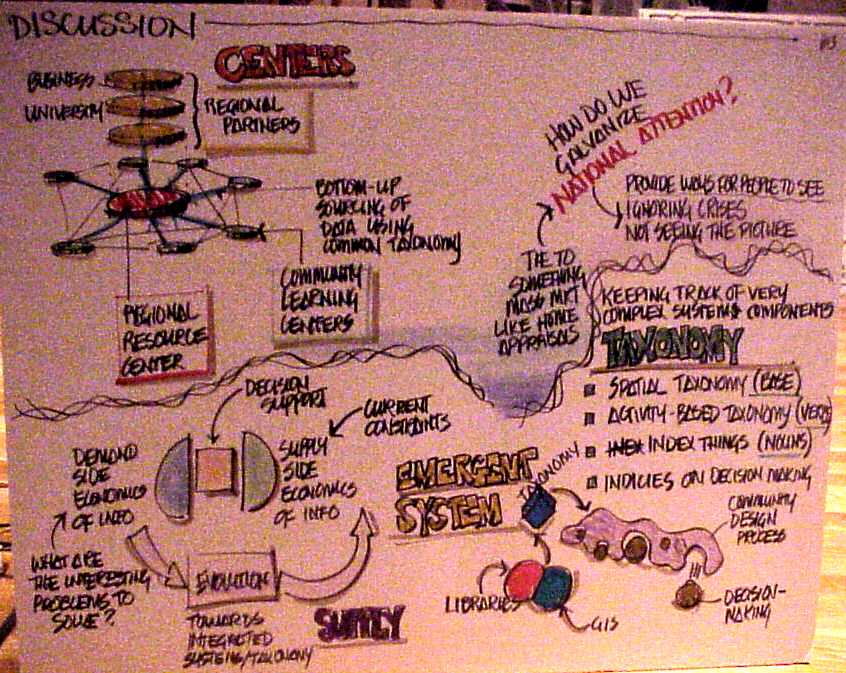 DISCUSSION
CENTERS
BUSINESS
UNIVERSITY
REGIONAL
PARTNERS
BOTTOM-UP
SOURCING OF
DATA USING
COMMON TAXONOMY
COMMUNITY
LEARNING
CENTERS
REGIONAL
RESOURCE
CENTER
HOW DO WE
GALVANIZE
NATIONAL ATTENTION?
PROVIDE WAYS FOR PEOPLE TO SEE
IGNORING CRISES
NOT SEEING THE PICTURE
TIE TO
SOMETHING
MASS MKT
LIKE HOME
APPRAISALS
KEEPING TRACK OF VERY
COMPLEX SYSTEMS COMPONENTS
TAXONOMY
SPATIAL TAXONOMY (BASE)
ACTIVITY-BASED TAXONOMY (VERBS)
INDEX THINGS (NOUNS)
INDICIES ON DECISION MAKING
DECISION
SUPPORT
CURRENT
CONSTRAINTS
DEMAND
SIDE
ECONOMICS
OF INFO
SUPPLY
SIDE
ECONOMICS
OF INFO
WHAT ARE
THE INTERESTING
PROBLEMS TO
SOLVE?
EVOLUTION
TOWARDS
INTEGRATED
SYSTEMS/TAXONOMY
SUPPLY
EMERGENT
SYSTEM
TAXONOMY
COMMUNITY
DESIGN
PROCESS
LIBRARIES
GIS
DECISION-
MAKING